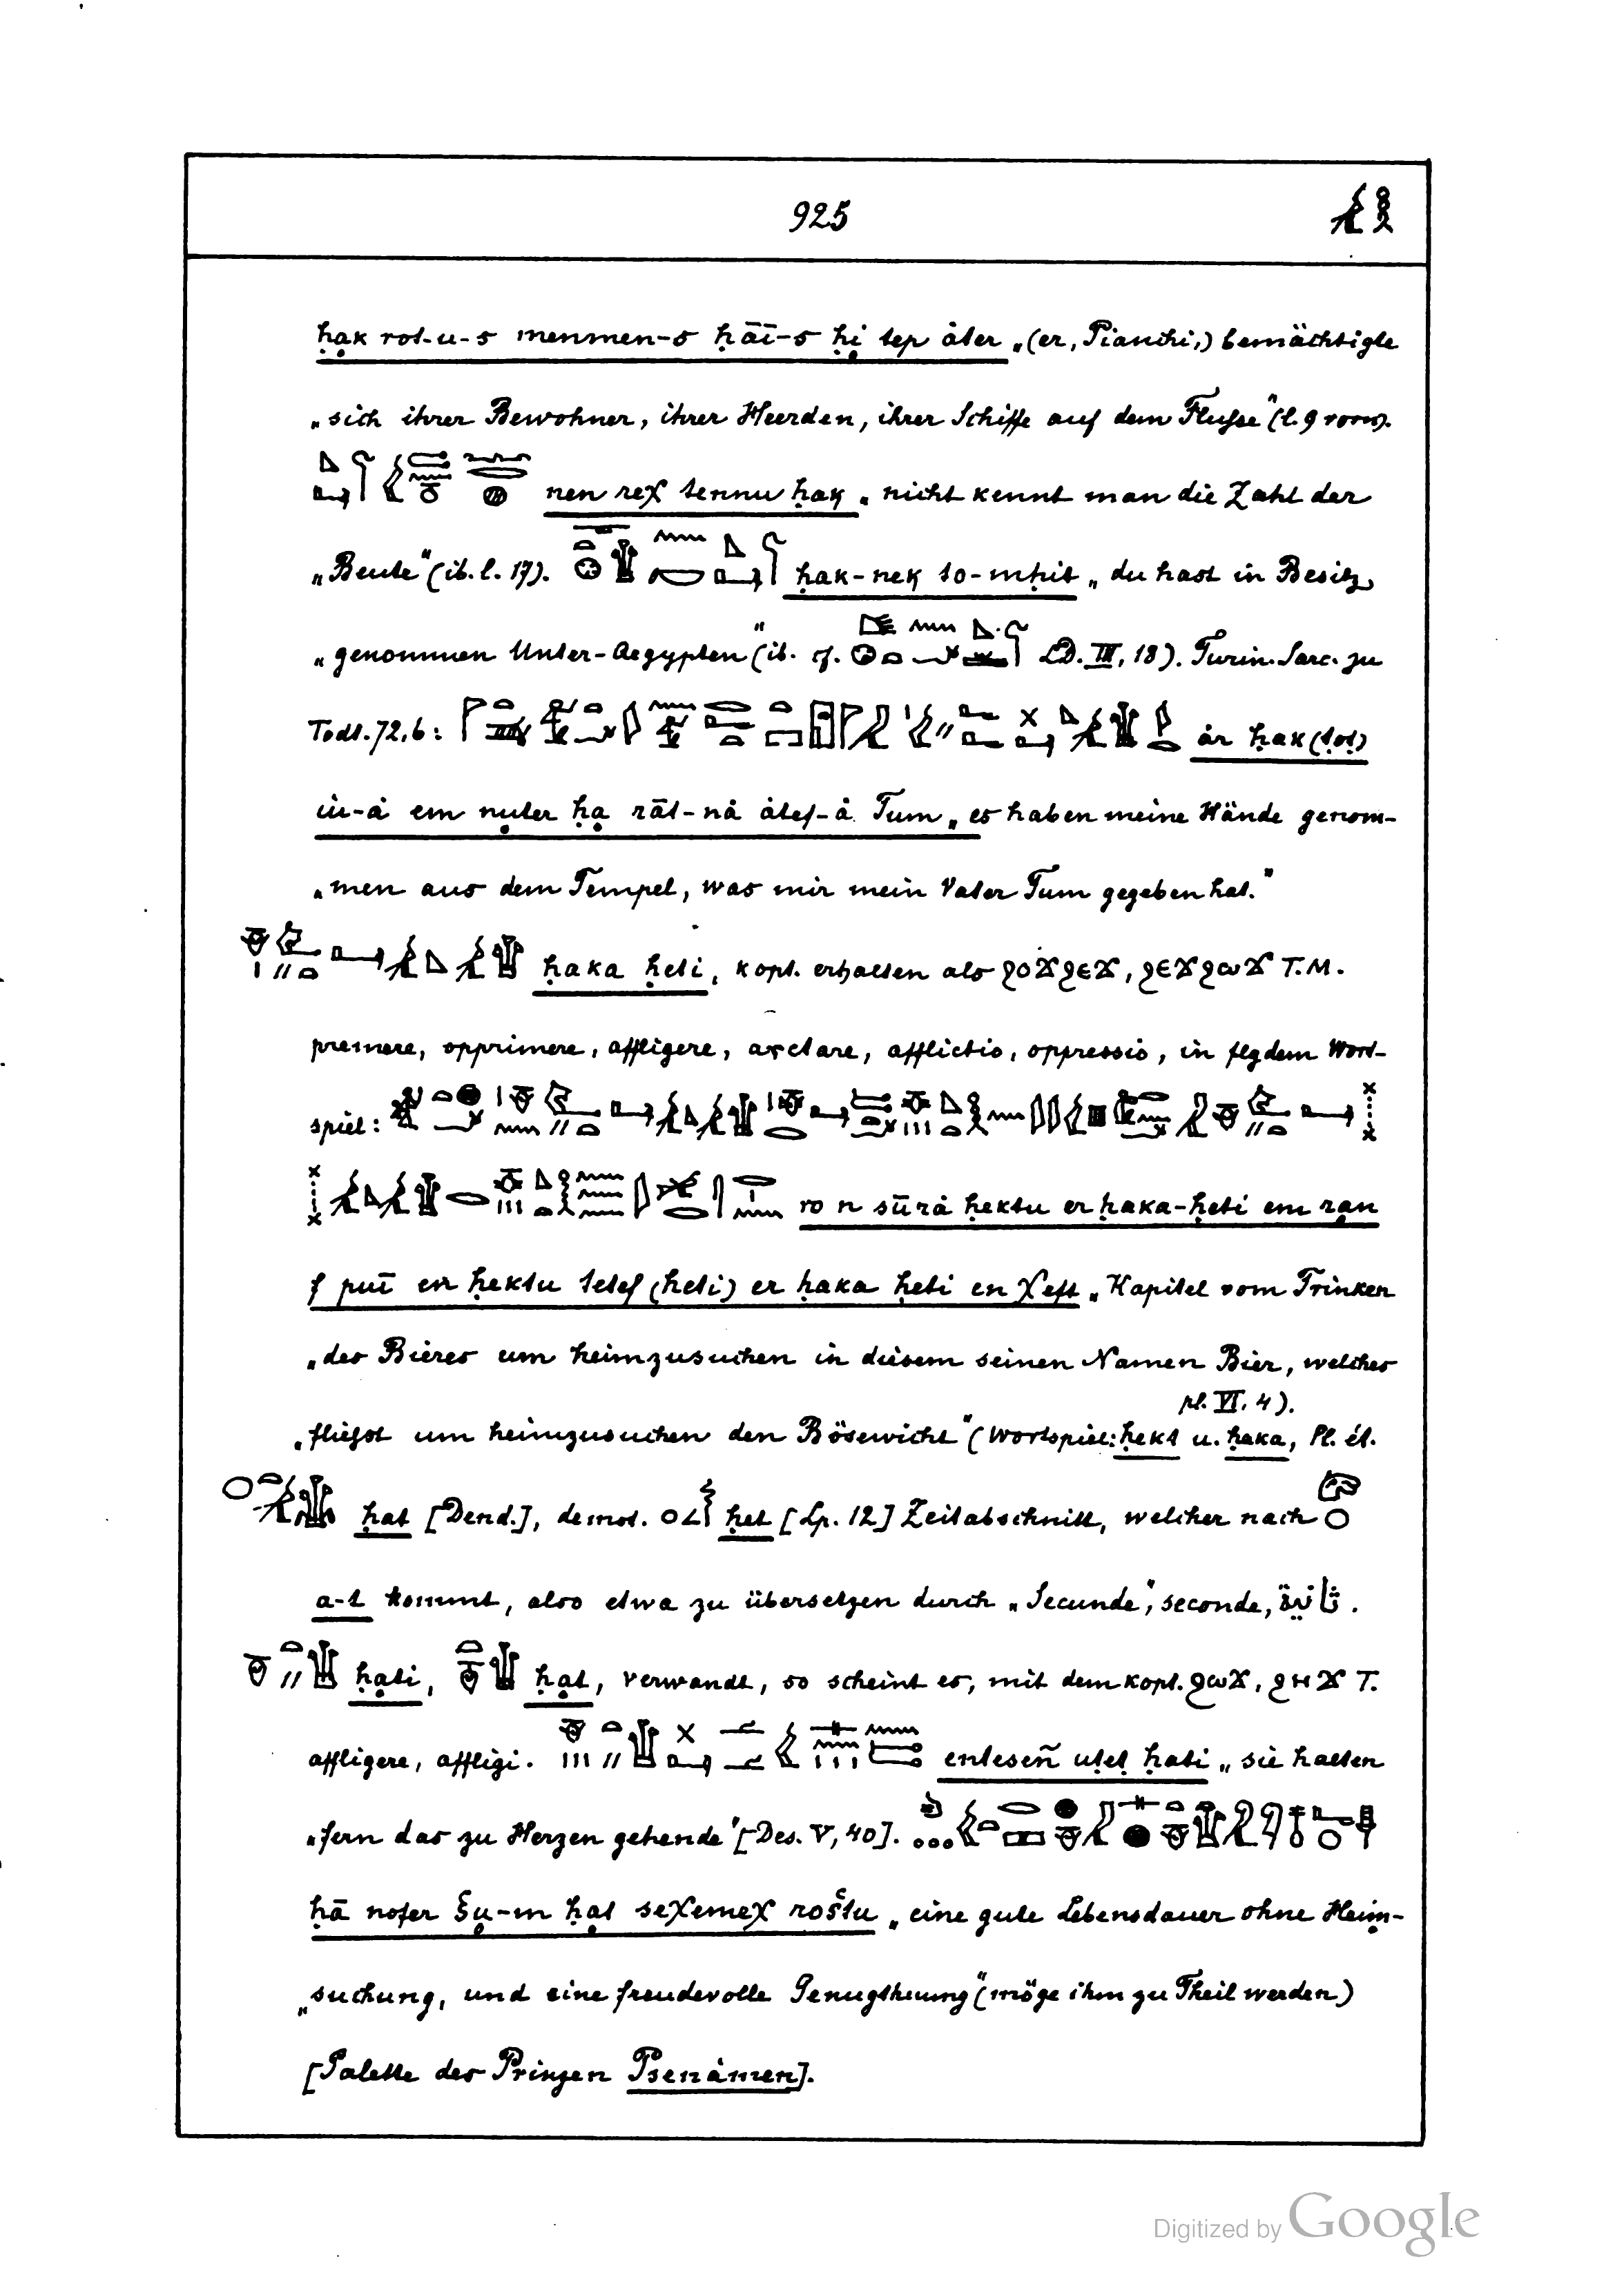 925
ḥak rot-u-s menmen-s ḥāī-s ḥi tep åter „(er, Pianchi,) bemächtigte
„sich ihrer Bewohner, ihrer Heerden, ihrer Schiffe auf dem Flusse" (l. 9 vorn).
nen reχ tennu ḥak „nicht kennt man die Zahl der
„Beute" (ib. l. 17). ḥak-nek to-mḥit „du hast in Besitz
„genommen Unter-Aegypten" (ib. cf. LD. III, 18). Turin. Sarc. zu
Todt. 72,6: år ḥak (ṭoṭ)
ůi-å em nuter ḥa rāt-nå åtef-å Tum „es haben meine Hände genom-
„men aus dem Tempel, was mir mein Vater Tum gegeben hat."
ḥaka ḥeti, kopt. erhalten als ϩⲟϫϩⲉϫ, ϩⲉϫϩⲱϫ T.M.
premere, opprimere, affligere, arctare, afflictio, oppressio, in flgdem Wort-
spiel:
ro n sūrå ḥektu er ḥaka-ḥeti em ran
f puī en ḥektu tetef (heti) er ḥaka ḥeti en χeft „Kapitel vom Trinken
„des Bieres um heimzusuchen in diesem seinen Namen Bier, welches
pl. VI. 4).
„fließt um heimzusuchen den Bösewicht" (Wortspiel: ḥekt u. ḥaka, Pl. ét.
ḥat [Dend.], demot. ḥet [Lp. 12] Zeitabschnitt, welcher nach
a-t kommt, also etwa zu übersetzen durch „Secunde", seconde, ثانية.
ḥati, ḥat, verwandt, so scheint es, mit dem kopt. ϩⲱϫ, ϩⲏϫ T.
affligere, affligi. entesen̄ uṭeṭ ḥati „sie halten
„fern das zu Herzen gehende" [Des. V, 40].
ḥā nofer šu-m ḥat seχemeχ roštu „eine gute Lebensdauer ohne Heim-
„suchung, und eine freudevolle Genugthuung" (möge ihm zu Theil werden)
[Palette des Prinzen Psenåmen].
Digitized by Google